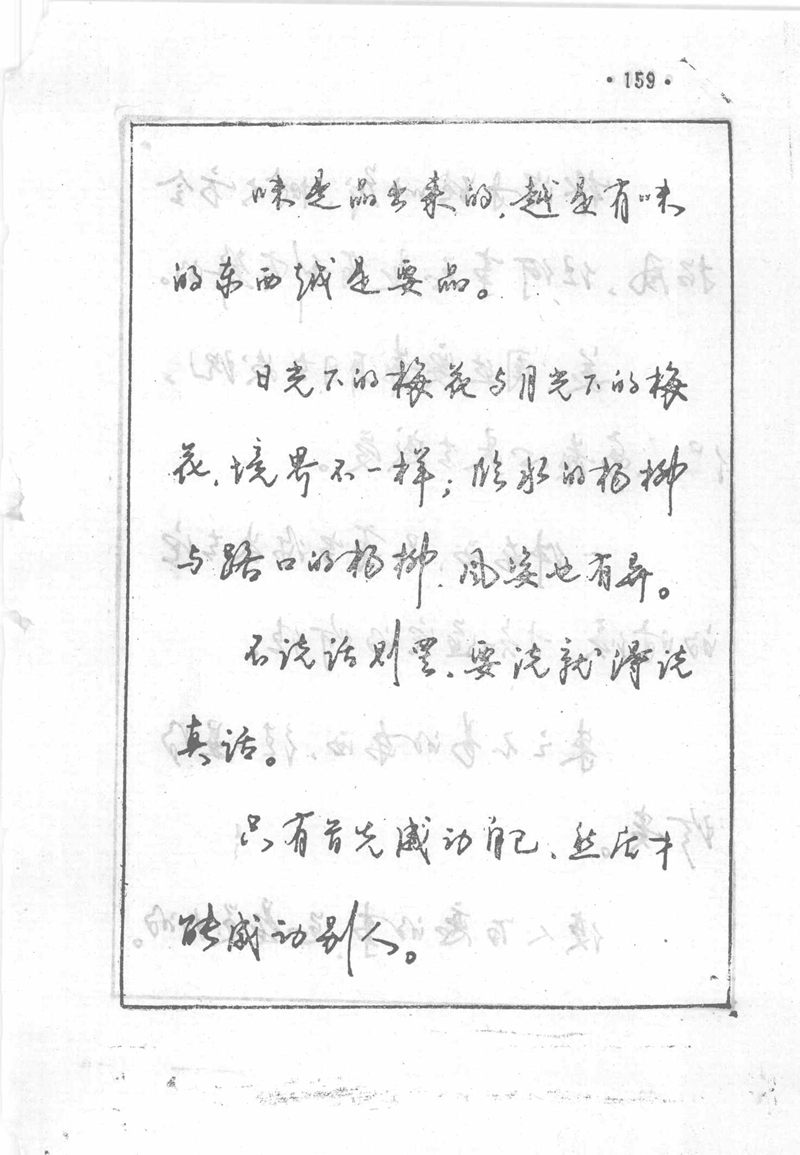 ·159·
味是品出来的,越是有味
的东西越是要品。
日光下的梅花与月光下的梅
花,境界不一样;临水的杨柳
与路口的杨柳,风姿也有异。
不说话则罢,要说就得说
真话。
只有首先感动自己、然后才
能感动别人。